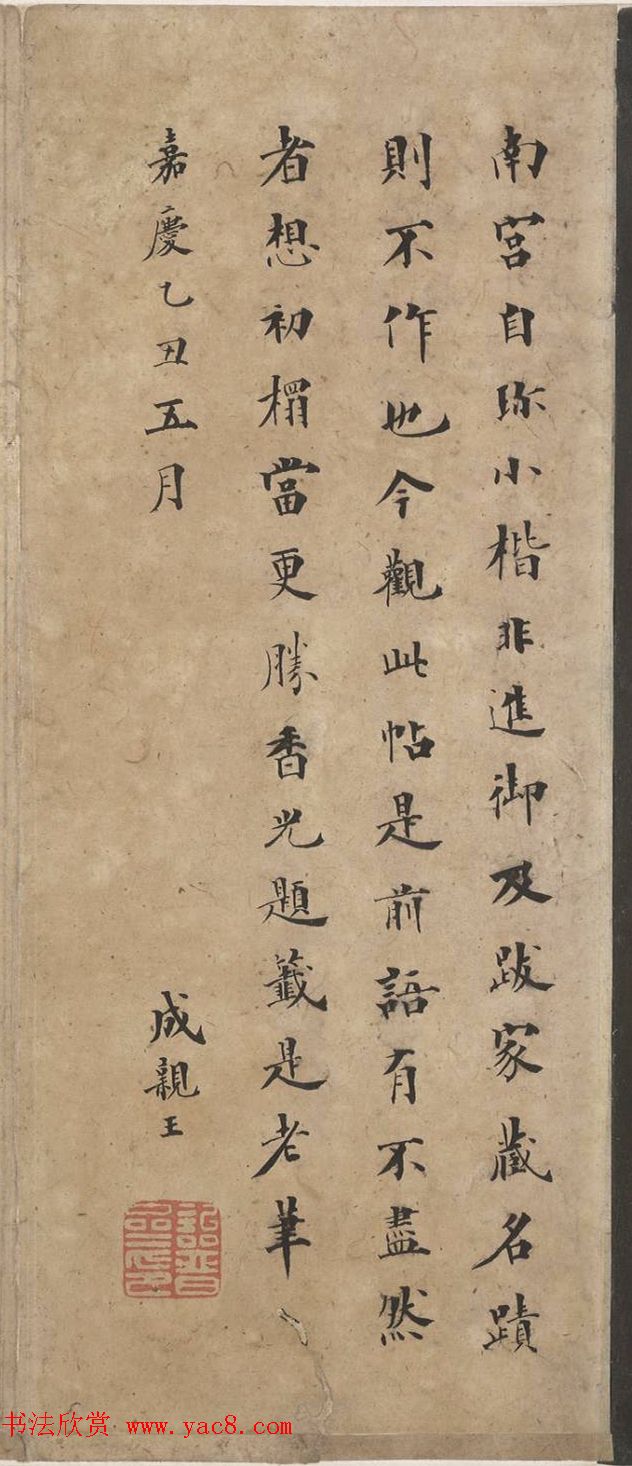 南宮自珎小楷非進御及跋家藏名蹟
則不作也今觀此帖是前語有不盡然
者想初榻當更勝香光題籤是老筆
嘉慶乙丑五月
成親王
书法欣赏 www.yac8.com